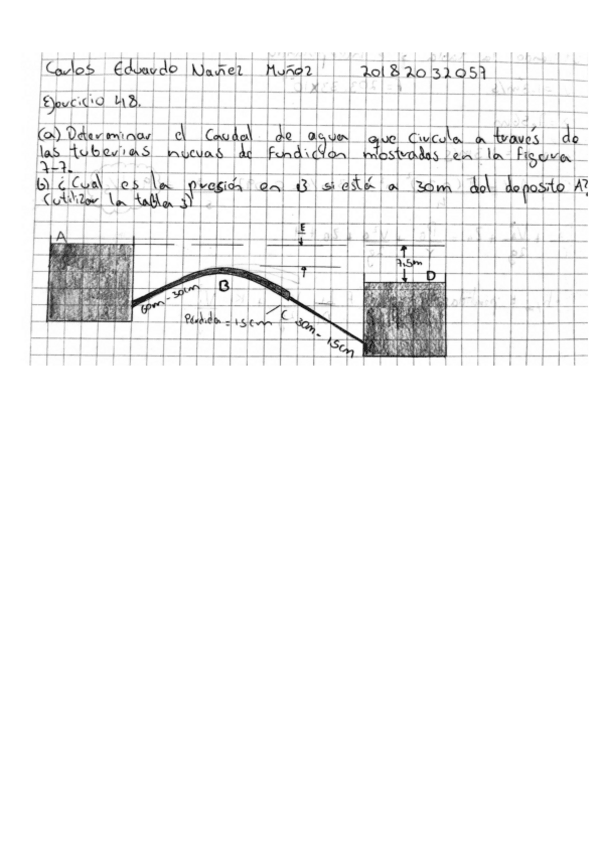 Carlos Eduardo Nañez Muñoz 20182032057
Ejercicio 48.
(a) Determinar el Caudal de agua que Circula a través de
las tuberias nuevas de Fundición mostradas en la Figura
7-7.
b) ¿Cual es la presión en B si está a 30m del deposito A?
(utilizar la tabla 3)
E
A
7.5m
9
D
B
60m - 30cm
C
Pérdida = 15cm
30m - 15cm